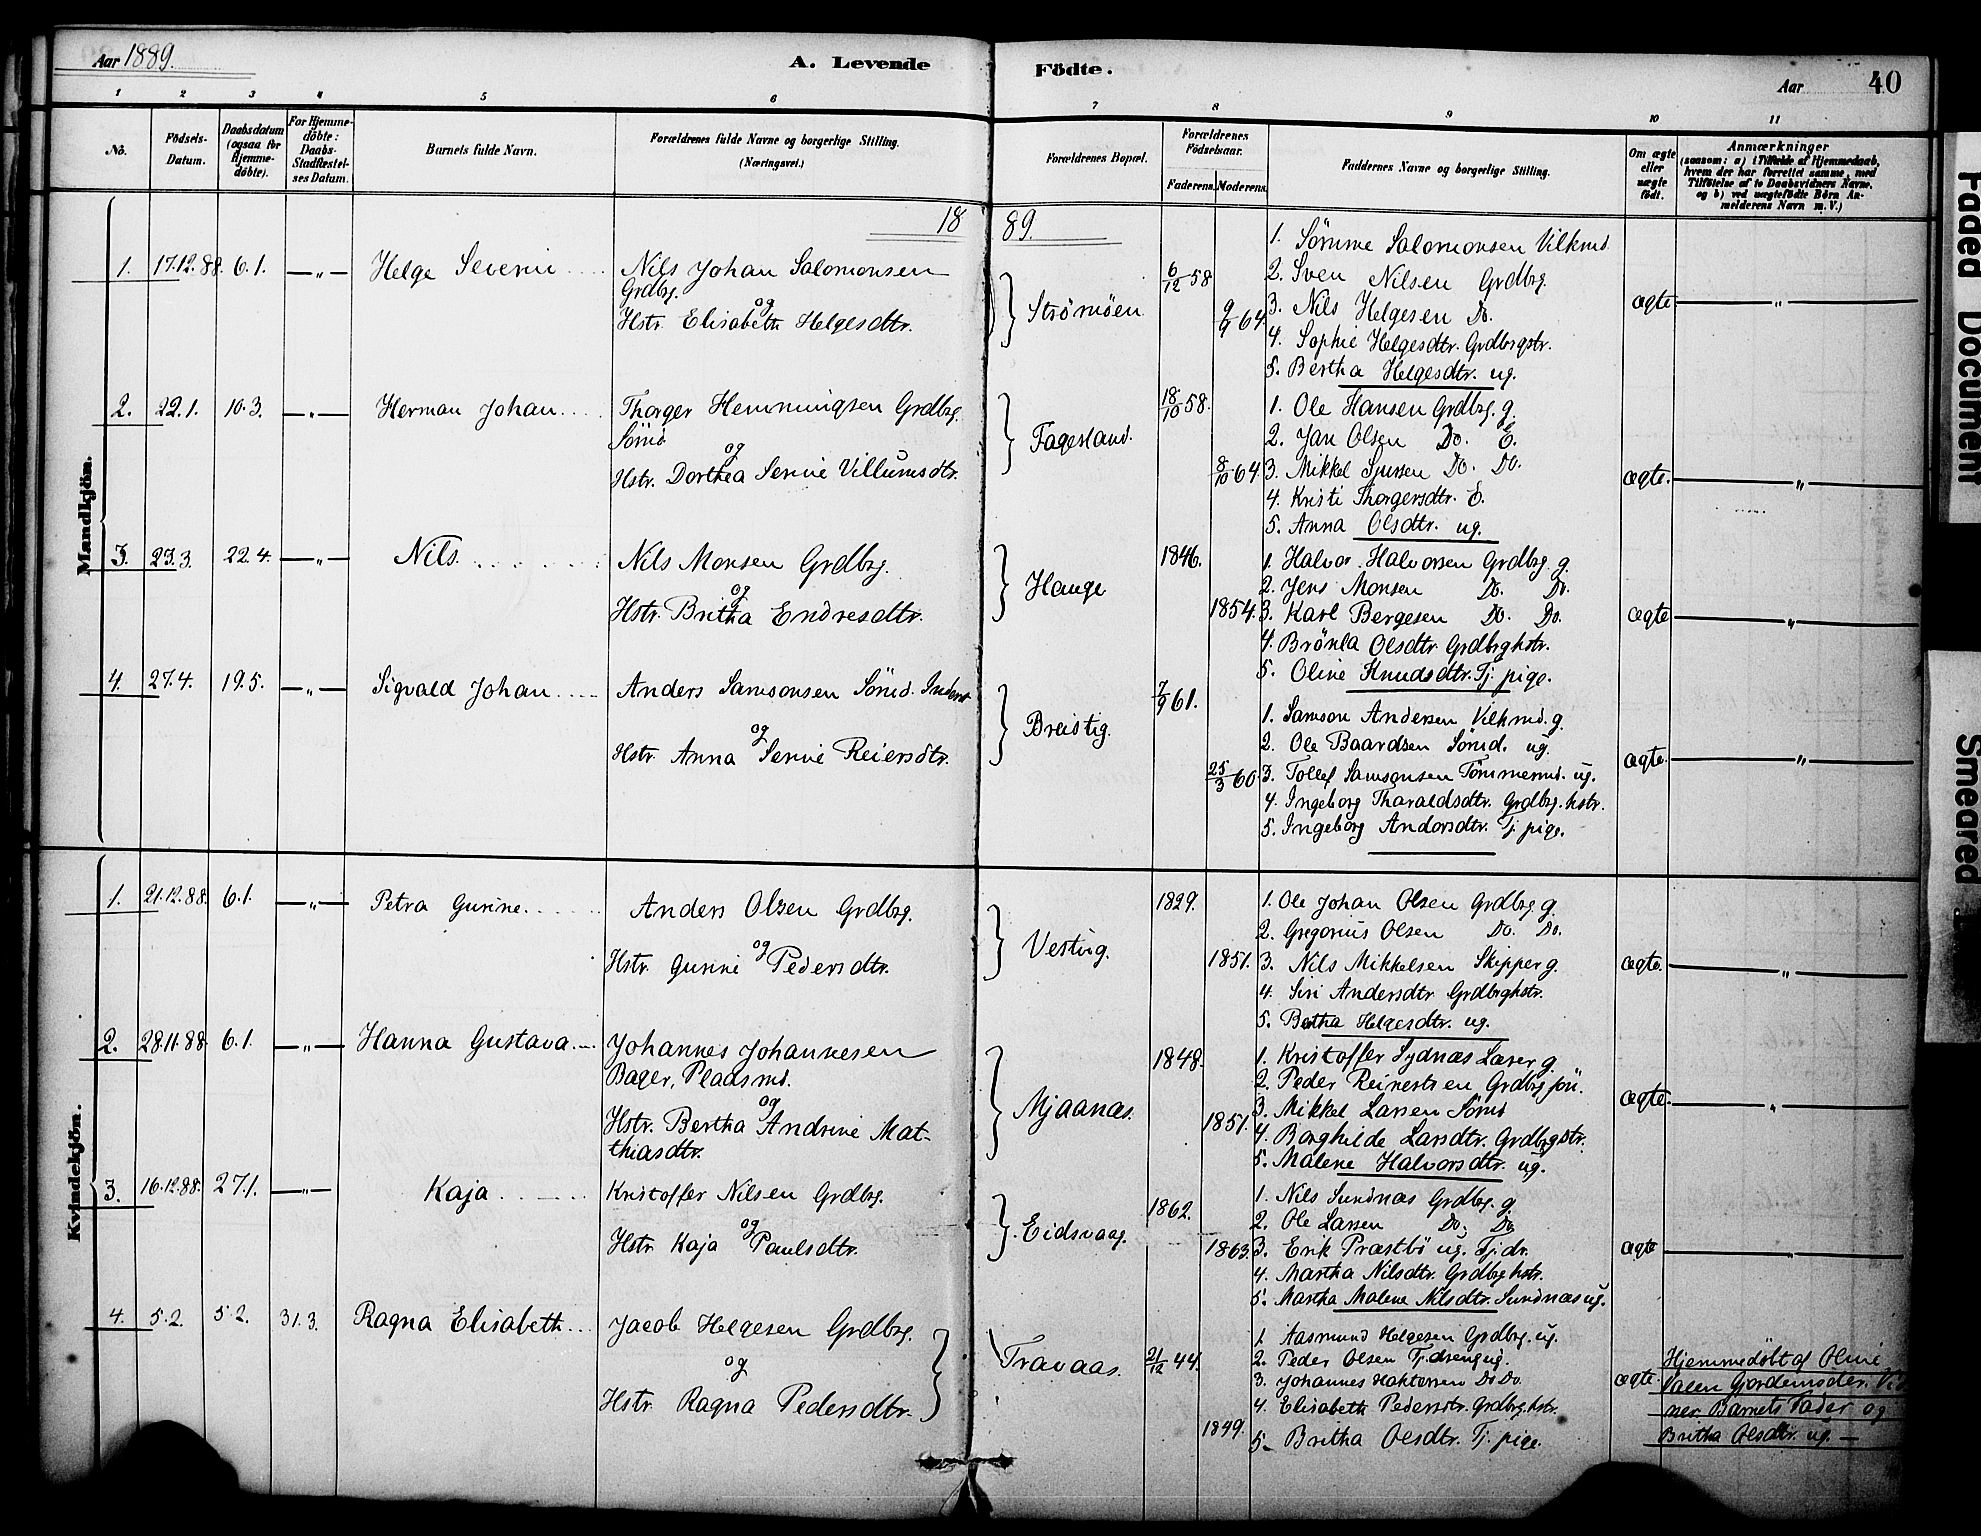 Aar 1889.
A. Levende Födte.
Aar 40
1 2 3 4 5 6 7 8 9 10 11
No.
Födsels-
Datum.
Daabsdatum
(ogsaa for
Hjemme-
döbte).
For Hjemme-
döbte:
Daabs-
Stadfæstel-
ses Datum.
Barnets fulde Navn.
Forældrenes fulde Navne og borgerlige Stilling.
(Næringsvei.)
Forældrenes Bopæl.
Forældrenes
Födselsaar.
Faderens. Moderens.
Faddernes Navne og borgerlige Stilling.
Om ægte
eller
uægte
födt.
Anmærkninger
(saasom: a) i Tilfælde af Hjemmedaab,
hvem der har forrettet samme, med
Tilföielse af to Daabsvidners Navne,
og b) ved uægtefödte Börn An-
melderens Navn m. V.)
1889.
Mandkjön.
1. 17.12.88. 6.1. —"— Helge Severin
Nils Johan Salomonsen
Grdbrg.
og
Hstr. Elisabeth Helgesdtr.
Strömöen
6/12 58
9/9 64
1. Sömme Salomonsen Vilkmd.
2. Sven Nilsen Grdbrg.
3. Nils Helgesen Do.
4. Sophie Helgesdtr. Grdbrgstr.
5. Bertha Helgesdtr. ug.
ægte —"—
2. 22.1. 10.3. —"— Herman Johan
Thorger Hemmingsen Grdbrg.
Sömd.
og
Hstr. Dorthea Serine Villumsdtr.
Fagesland.
18/10 58.
8/10 64
1. Ole Hansen Grdbrg. g.
2. Jan Olsen Do. E.
3. Mikkel Sjursen Do. Do.
4. Kristi Thorgersdtr. E.
5. Anna Olsdtr. ug.
ægte. —"—
3. 23.3. 22.4. —"— Nils
Nils Monsen Grdbrg.
og
Hstr. Britha Endresdtr.
Hauge
1846.
1854.
1. Halvor Halvorsen Grdbrg. g.
2. Jens Monsen Do. Do.
3. Karl Bergesen Do. Do.
4. Brönla Olsdtr. Grdbrghstr.
5. Oline Knudsdtr. Tj. pige.
ægte —"—
4. 27.4. 19.5. —"— Sigvald Johan
Anders Samsonsen Sömd. Inderst
og
Hstr. Anna Serine Reiersdtr.
Breistig.
7/9 61.
25/3 60
1. Samson Andersen Vilkmd. g.
2. Ole Baardsen Sömd. ug.
3. Tollef Samsonsen Tömmermd. ug.
4. Ingeborg Tharaldsdtr. Grdbrg. hstr.
5. Ingeborg Andorsdtr. Tj. pige.
ægte. —"—
Kvindekjön.
1. 21.12.88. 6.1. —"— Petra Gurine
Anders Olsen Grdbrg.
og
Hstr. Gurine Pedersdtr.
Vestvig.
1829.
1851.
1. Ole Johan Olsen Grdbrg. g.
2. Gregorius Olsen Do. Do.
3. Nils Mikkelsen Skipper g.
4. Siri Andersdtr. Grdbrghstr.
5. Bertha Helgesdtr. ug.
ægte. —"—
2. 28.11.88. 6.1. —"— Hanna Gustava
Johannes Johannesen
Bager, Pladsmd.
og
Hstr. Bertha Andrine Mat-
thiasdtr.
Mjaanæs.
1848.
1851.
1. Kristoffer Sydnæs Lærer g.
2. Peder Reinertsen Grdbrg. jön.
3. Mikkel Larsen Sömd
4. Borghilde Larsdtr. Grdbrgstr.
5. Malene Halvorsdtr. ug.
ægte. —"—
3. 16.12.88. 27.1. —"— Kaja
Kristoffer Nilsen Grdbrg.
og
Hstr. Kaja Paulsdtr.
Eidsvaag.
1862.
1863.
1. Nils Sundnæs Grdbrg. g.
2. Ole Larsen Do. Do.
3. Erik Præstbö ug. Tj.dr.
4. Martha Nilsdtr. Grdbrghstr.
5. Martha Malene Nilsdtr. Sundnæs ug.
ægte —"—
4. 5.2. 5.2. 31.3. Ragna Elisabeth
Jacob Helgesen Grdbrg.
og
Hstr. Ragna Pedersdtr.
Travaas.
21/12 44.
1849.
1. Aasmund Helgesen Grdbrg. ug.
2. Peder Olsen Tj.dreng ug.
3. Johannes Haktorsen Do Do.
4. Elisabeth Pedersdtr. Grdbrghstr.
5. Britha Olsdtr. Tj. pige.
ægte
Hjemmedöbt af Oline
Valen Gjordemoder. Vid
ner Barnets Fader og
Britha Olsdtr. ug. —
Faded Document
Smeared